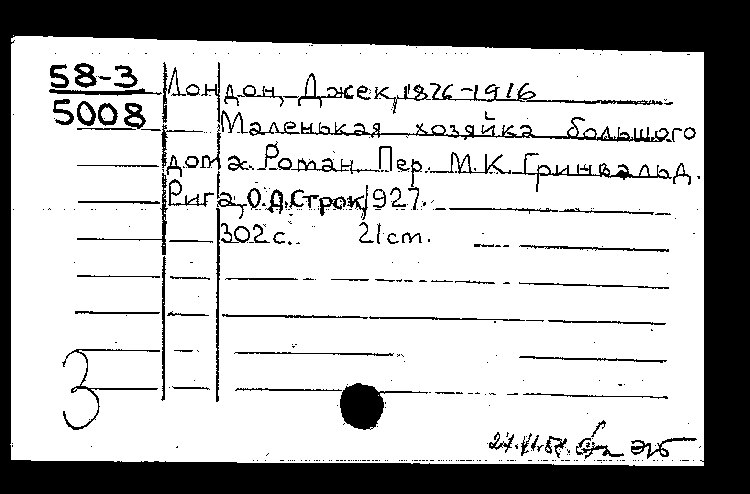 58-3
5008
Лондон, Джек, 1876-1916
Маленькая хозяйка большого
дома. Роман. Пер. М.К. Гринвальд.
Рига, О.Д.Строк, 1927.
302 с. 21 см.
3